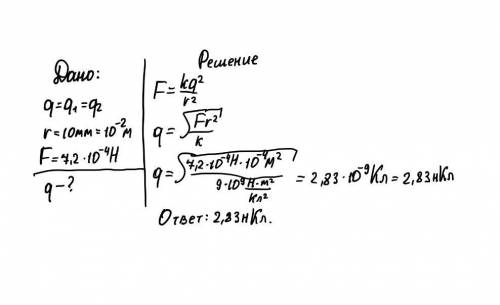 Дано:
q=q₁=q₂
r=10мм=10⁻²м
F=7,2·10⁻⁴Н
q-?
Решение
F=kq²/r²
q=√(Fr²/k)
q=√(7,2·10⁻⁴Н·10⁻⁴м²/9·10⁹ Н·м²/Кл²) = 2,83·10⁻⁹Кл=2,83нКл
Ответ: 2,83нКл.